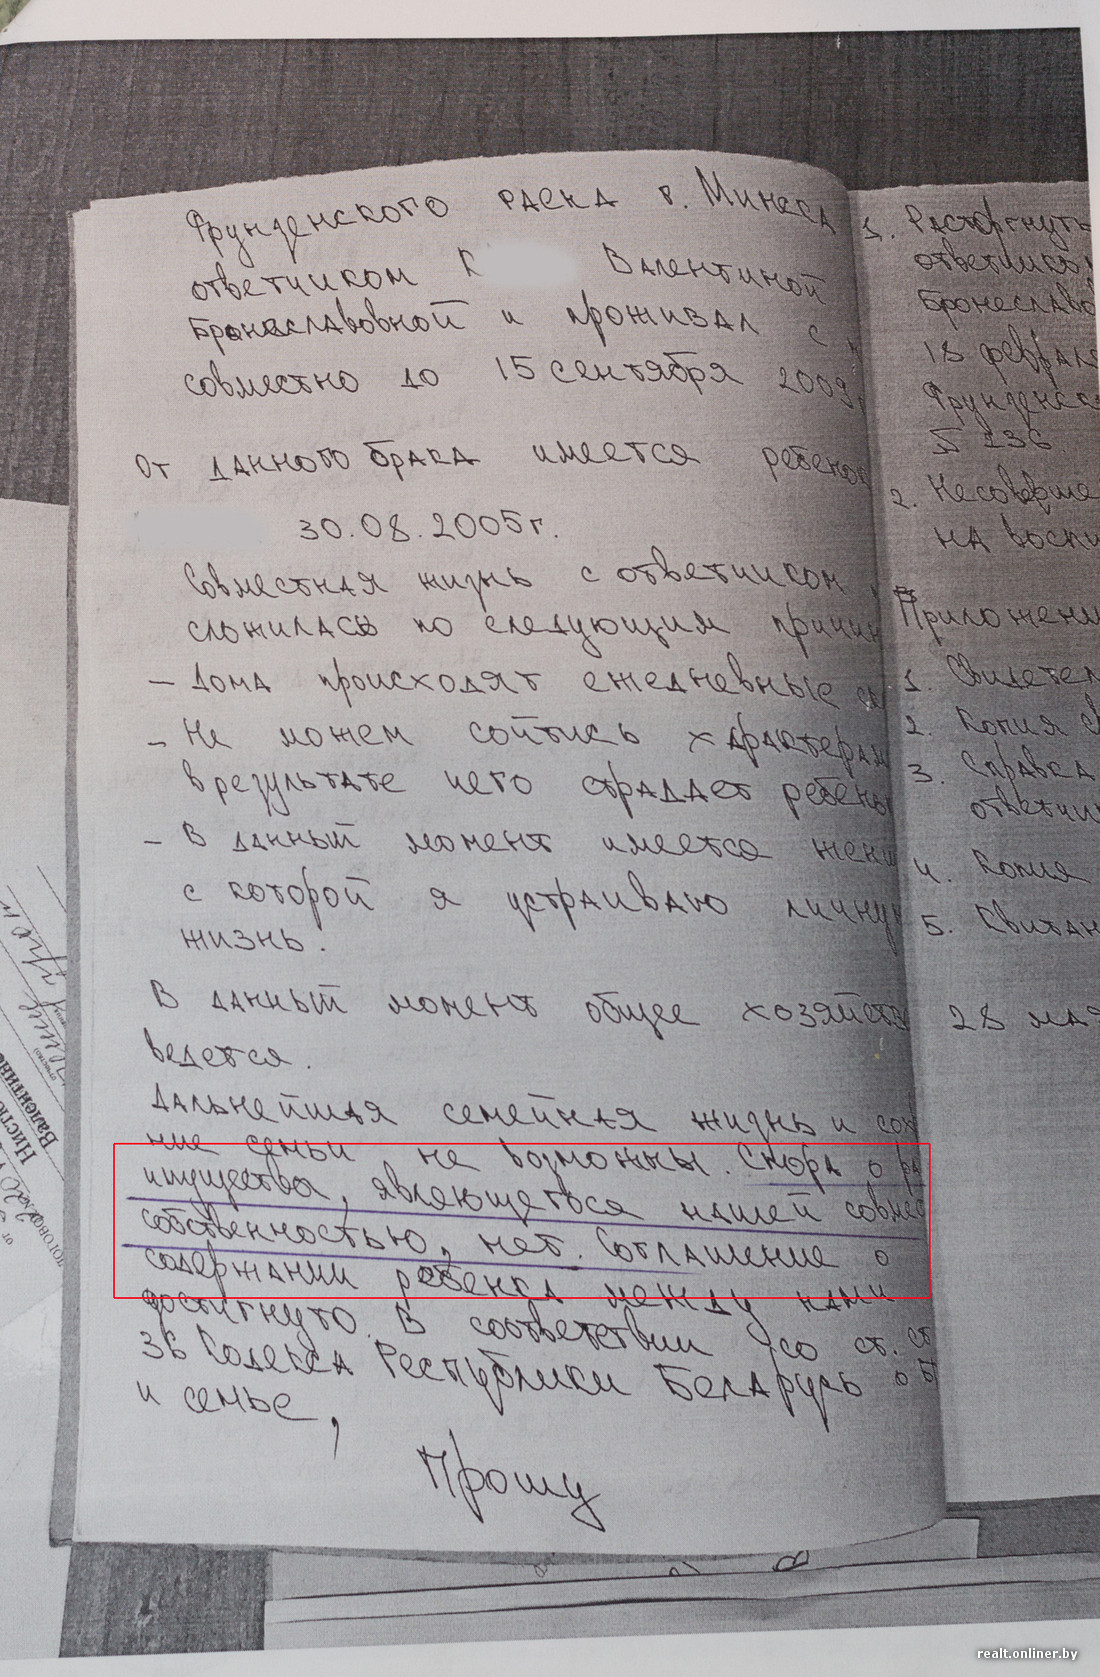 Фрунзенского р-на г. Минска
ответчиком К Валентиной
Бронеславовной и проживал с
совместно до 15 сентября 2009
От данного брака имеется ребенок
30.08.2005г.
Совместная жизнь с ответчиком
сложилась по следующим причин
– Дома происходят ежедневные
– Не можем сойтись характерам
в результате чего страдает ребен
– В данный момент имеется жен
с которой я устраиваю личну
жизнь.
В данный момент общее хозяйств
ведется.
Дальнейшая семейная жизнь и сох
ние семьи не возможны. Спора о ра
имущества, являющегося нашей совмес
собственностью, нет. Соглашение о
содержании ребенка между нами
достигнуто. В соответствии со ст. ст
36 Кодекса Республики Беларусь о б
и семье,
Прошу
1. Расторгнуть
ответчико
Бронеславо
18 февраля
Фрунзенск
2. Несоверше
на воспи
Приложени
1. Свидетел
2. Копия с
3. Справка
ответчи
4. Копия
5. Квитан
28 мая
Валентино
realt.onliner.by